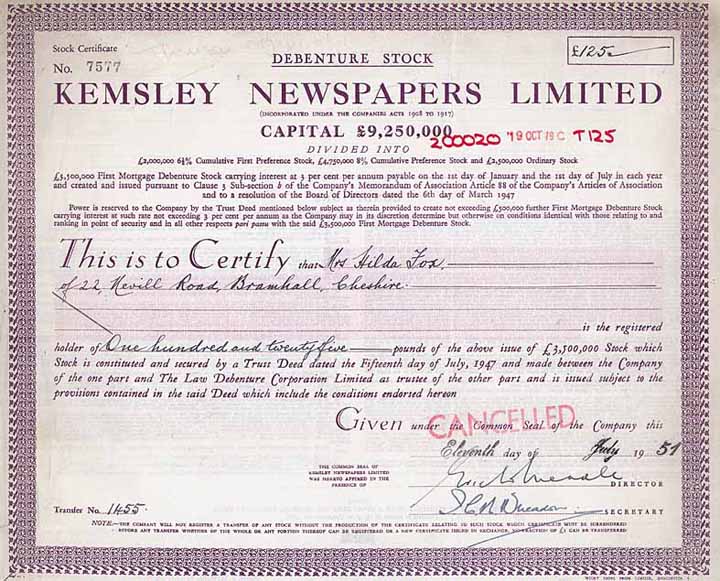 Stock Certificate
No. 7577
DEBENTURE STOCK
£125
KEMSLEY NEWSPAPERS LIMITED
(INCORPORATED UNDER THE COMPANIES ACTS 1908 TO 1917)
CAPITAL £9,250,000
200020 19 OCT T125
DIVIDED INTO
£2,000,000 6½% Cumulative First Preference Stock, £4,750,000 8% Cumulative Preference Stock and £2,500,000 Ordinary Stock
£3,500,000 First Mortgage Debenture Stock carrying interest at 3 per cent per annum payable on the 1st day of January and the 1st day of July in each year
and created and issued pursuant to Clause 3 Sub-section b of the Company's Memorandum of Association Article 88 of the Company's Articles of Association
and to a resolution of the Board of Directors dated the 6th day of March 1947
Power is reserved to the Company by the Trust Deed mentioned below subject as therein provided to create not exceeding £500,000 further First Mortgage Debenture Stock
carrying interest at such rate not exceeding 3 per cent per annum as the Company may in its discretion determine but otherwise on conditions identical with those relating to and
ranking in point of security and in all other respects pari passu with the said £3,500,000 First Mortgage Debenture Stock.
This is to Certify that Mrs Hilda Fox.
of 22, Nevill Road, Bramhall, Cheshire.
is the registered
holder of One hundred and twenty five pounds of the above issue of £3,500,000 Stock which
Stock is constituted and secured by a Trust Deed dated the Fifteenth day of July, 1947 and made between the Company
of the one part and The Law Debenture Corporation Limited as trustee of the other part and is issued subject to the
provisions contained in the said Deed which include the conditions endorsed hereon
Given under the Common Seal of the Company this
CANCELLED
Eleventh day of July 1951
THE COMMON SEAL OF
KEMSLEY NEWSPAPERS LIMITED
WAS HERETO AFFIXED IN THE
PRESENCE OF
DIRECTOR
SECRETARY
Transfer No. 1455.
NOTE:—THE COMPANY WILL NOT REGISTER A TRANSFER OF ANY STOCK WITHOUT THE PRODUCTION OF THE CERTIFICATE RELATING TO SUCH STOCK WHICH CERTIFICATE MUST BE SURRENDERED
BEFORE ANY TRANSFER WHETHER OF THE WHOLE OR ANY PORTION THEREOF CAN BE REGISTERED OR A NEW CERTIFICATE ISSUED IN EXCHANGE. NO FRACTION OF £1 CAN BE TRANSFERRED